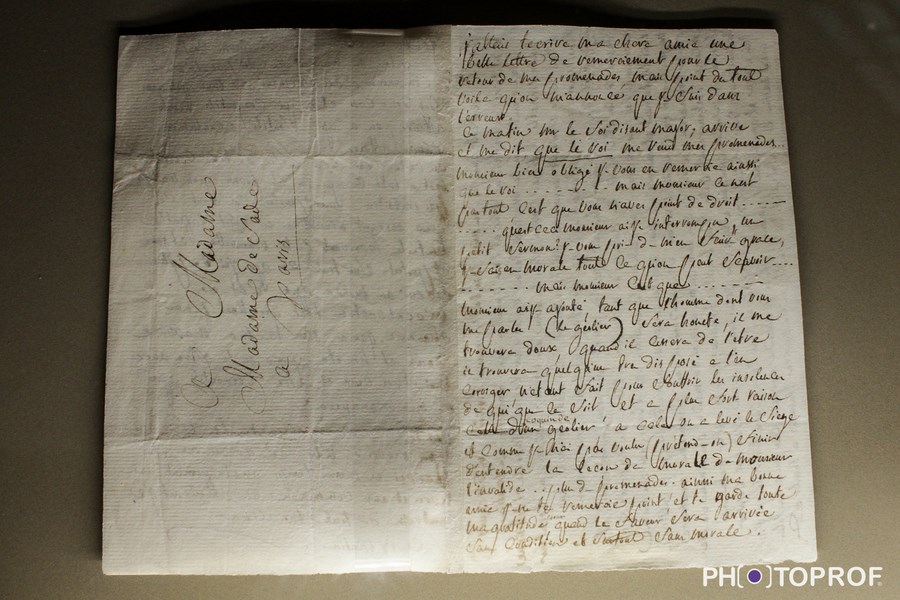 A Madame
Madame de Sade
a paris
j'allais t'ecrire ma chere amie une
belle lettre de remerciement pour le
retour de mes promenades mais point du tout
voila qu'on m'annonce que je suis dans
l'erreur.
ce matin mr le soi disant major, arrive
et me dit que le roi me rend mes promenades...
monsieur bien obligé je vous en remercie ainsi
que le roi ........ mais monsieur ce n'est
pas tout c'est que vous n'avez point de droit ......
..... qu'est ce monsieur ai-je interrompu, un
petit sermon? je vous
je sais en morale tout ce qu'on peut sçavoir....
........ mais monsieur c'est que ........
monsieur ai-je ajouté, tant que l'homme dont vous
me parlez (le geolier) sera honete, il me
trouvera doux, quand il cessera de l'etre
il trouvera quelqu'un tres disposé a l'en
corriger n'etant fait pour souffrir les insolences
de qui que ce soit et a plus forte raison
celle d'un coquin de geolier a cela on a levé le siege
et comme je n'ai pas voulu (pretend-on) finir
d'entendre la leçon de morale de monsieur
l'invalide .. plus de promenades. ainsi ma bonne
amie je ne te remercie point et te garde toute
ma gratitude quand la faveur sera arrivée
sans conditions et surtout sans morale.
PHOTOPROF